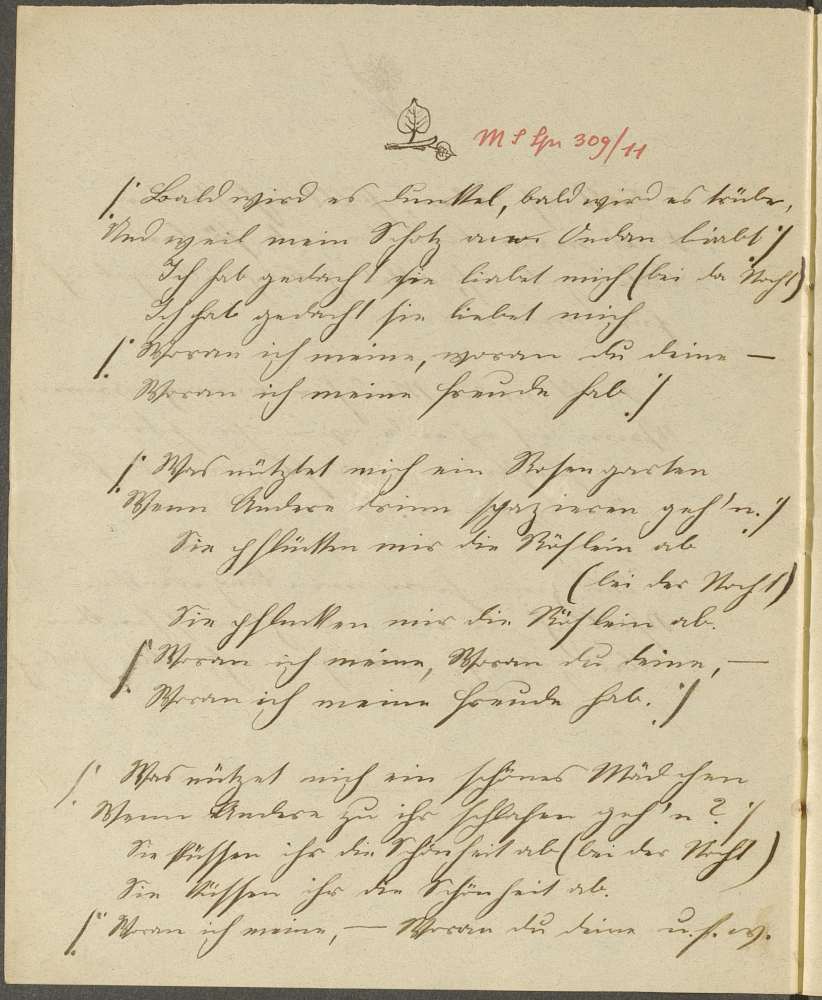 M S Lpr 309/11
/: Bald wird es dunkel, bald wird es trübe,
Und weil mein Schatz Andan liabt :/
Ich hab gedacht sie liabet mich (bei da Nacht)
Ich hab gedacht sie liebet mich
/: Woran ich meine, woran du deine —
Woran ich meine Freude hab :/
/: Was nützlet mich ein Rosengarten
Wenn Andere drinn spazieren geh'n. :/
Sie pflückten mir die Röslein ab
(bei der Nacht)
Sie pflücken mir die Röslein ab.
/: Woran ich meine, Woran du deine, —
Woran ich meine Freude hab. :/
/: Was nützet mich ein schönes Mädchen
Wenn Andere zu ihr schlafen geh'n? :/
Sie küssen ihr die Schönheit ab (bei der Nacht)
Sie küssen ihr die Schönheit ab.
/: Woran ich meine, — Woran du deine u.s.w.